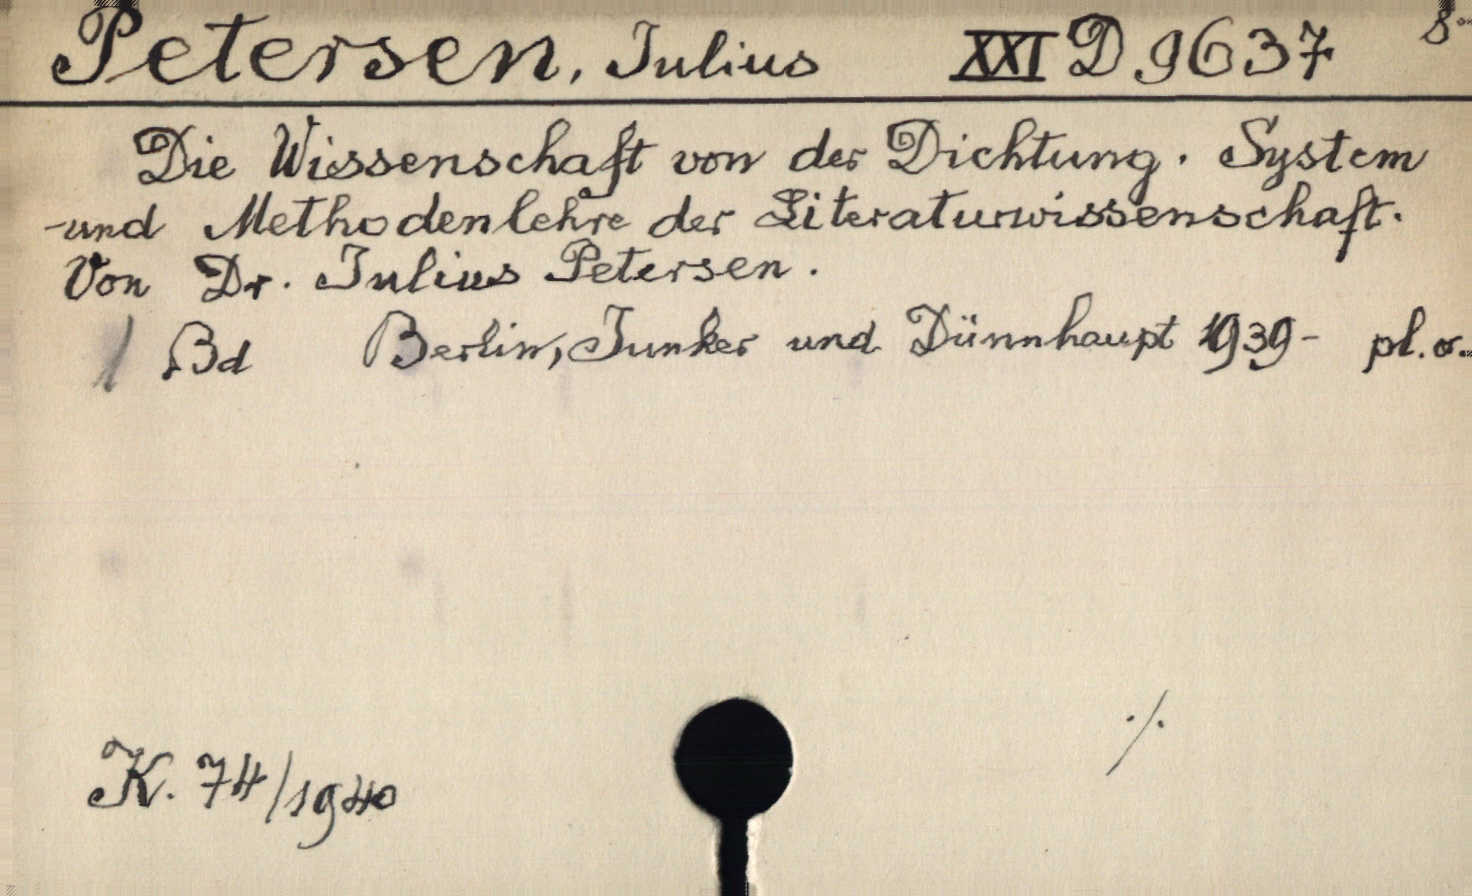 Petersen, Julius XXI D 9637 8°
Die Wissenschaft von der Dichtung. System
und Methodenlehre der Literaturwissenschaft.
Von Dr. Julius Petersen.
1 Bd Berlin, Junker und Dünnhaupt 1939- pl. o.
K. 74/1940 ./.